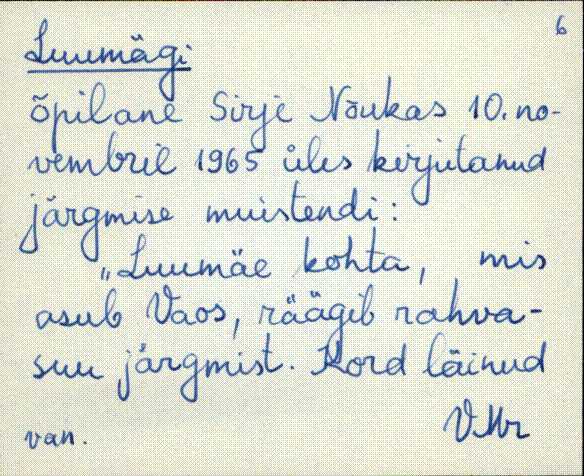 6
Luumägi
õpilane Sirje Nõukas 10. no-
vembril 1965 üles kirjutanud
järgmise muistendi:
„Luumäe kohta, mis
asub Vaos, räägib rahva-
suu järgmist. Kord läinud
van. V.Mr